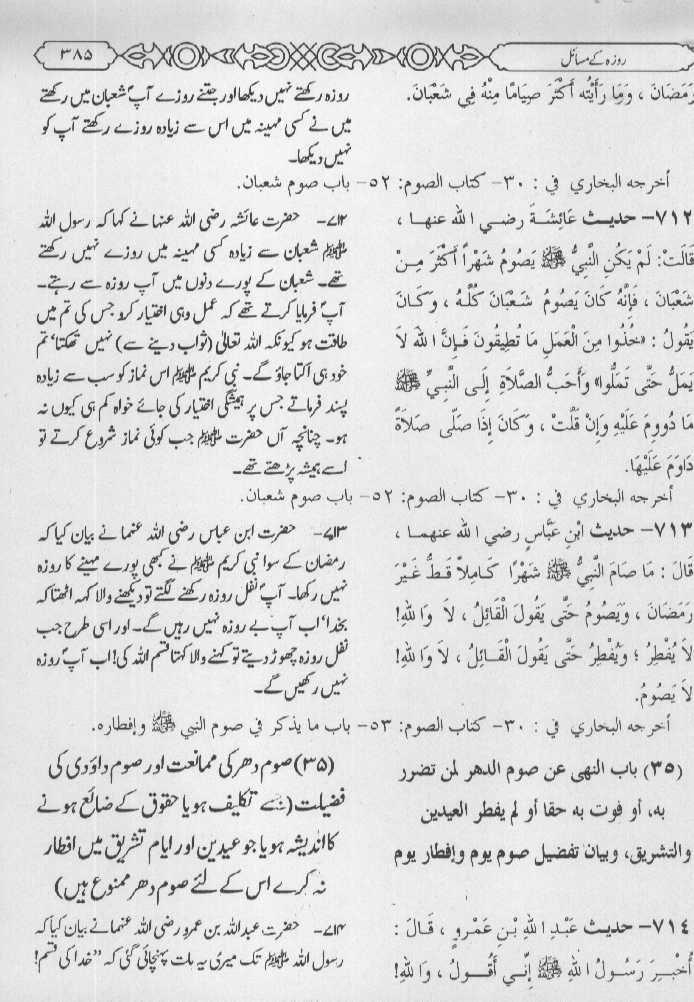 روزہ کے مسائل
۳۸۵
رَمَضَانَ ، وَمَا رَأَيْتُه أَكْثَرَ صِيَامًا مِنْهُ فِي شَعْبَانَ.
روزہ رکھتے نہیں دیکھا اور جتنے روزے آپؐ شعبان میں رکھتے
میں نے کسی مہینہ میں اس سے زیادہ روزے رکھتے آپ کو
نہیں دیکھا۔
أخرجه البخاري في : ٣٠- كتاب الصوم: ٥٢- باب صوم شعبان.
٧١٢- حديث عَائِشَةَ رضي الله عنها ،
قَالَتْ: لَمْ يَكُنِ النَّبِيُّ ﷺ يَصُومُ شَهْرًا أَكْثَرَ مِنْ
شَعْبَانَ ، فَإِنَّهُ كَانَ يَصُومُ شَعْبَانَ كُلَّهُ ، وَكَانَ
يَقُولُ : «خُذُوا مِنَ الْعَمَلِ مَا تُطِيقُونَ فَإِنَّ اللهَ لاَ
يَمَلُّ حَتَّى تَمَلُّوا» وَأَحَبُّ الصَّلاَةِ إِلَى النَّبِيِّ ﷺ
مَا دُووِمَ عَلَيْهِ وَإِنْ قَلَّتْ ، وَكَانَ إِذَا صَلَّى صَلاَةً
دَاوَمَ عَلَيْهَا.
۷۱۲- حضرت عائشہ رضی اللہ عنہا نے کہا کہ رسول اللہ
ﷺ شعبان سے زیادہ کسی مہینہ میں روزے نہیں رکھتے
تھے۔ شعبان کے پورے دنوں میں آپ روزہ سے رہتے۔
آپؐ فرمایا کرتے تھے کہ عمل وہی اختیار کرو جس کی تم میں
طاقت ہو کیونکہ اللہ تعالیٰ (ثواب دینے سے) نہیں تھکتا‘ تم
خود ہی اکتا جاؤ گے۔ نبی کریم ﷺ اس نماز کو سب سے زیادہ
پسند فرماتے جس پر ہمیشگی اختیار کی جائے خواہ کم ہی کیوں نہ
ہو۔ چنانچہ آں حضرت ﷺ جب کوئی نماز شروع کرتے تو
اسے ہمیشہ پڑھتے تھے۔
أخرجه البخاري في : ٣٠- كتاب الصوم: ٥٢- باب صوم شعبان.
٧١٣- حديث ابْنِ عَبَّاسٍ رضي الله عنهما ،
قَالَ : مَا صَامَ النَّبِيُّ ﷺ شَهْرًا كَامِلاً قَطُّ غَيْرَ
رَمَضَانَ ، وَيَصُومُ حَتَّى يَقُولَ الْقَائِلُ ، لاَ وَاللهِ!
لاَ يُفْطِرُ ؛ وَيُفْطِرُ حَتَّى يَقُولَ الْقَائِلُ ، لاَ وَاللهِ!
لاَ يَصُومُ.
۷۱۳- حضرت ابن عباس رضی اللہ عنہما نے بیان کیا کہ
رمضان کے سوا نبی کریم ﷺ نے کبھی پورے مہینے کا روزہ
نہیں رکھا۔ آپؐ نفل روزہ رکھنے لگتے تو دیکھنے والا کہہ اٹھتا کہ
بخدا‘ اب آپ بے روزہ نہیں رہیں گے۔ اور اسی طرح جب
نفل روزہ چھوڑ دیتے تو کہنے والا کہتا قسم اللہ کی! اب آپؐ روزہ
نہیں رکھیں گے۔
أخرجه البخاري في : ٣٠- كتاب الصوم: ٥٣- باب ما يذكر في صوم النبي ﷺ وإفطاره.
(٣٥) باب النهى عن صوم الدهر لمن تضرر
به، أو فوت به حقا أو لم يفطر العيدين
والتشريق، وبيان تفضيل صوم يوم وإفطار يوم
(۳۵) صوم دھر کی ممانعت اور صوم داؤدی کی
فضیلت (جسے تکلیف ہو یا حقوق کے ضائع ہونے
کا اندیشہ ہو یا جو عیدین اور ایام تشریق میں افطار
نہ کرے اس کے لئے صوم دھر ممنوع ہیں)
٧١٤- حديث عَبْدِ اللهِ بْنِ عَمْرٍو ، قَالَ :
أُخْبِرَ رَسُولُ اللهِ ﷺ إِنِّي أَقُولُ ، وَاللهِ!
۷۱۴- حضرت عبداللہ بن عمرو رضی اللہ عنہما نے بیان کیا کہ
رسول اللہ ﷺ تک میری یہ بات پہنچائی گئی کہ ”خدا کی قسم!